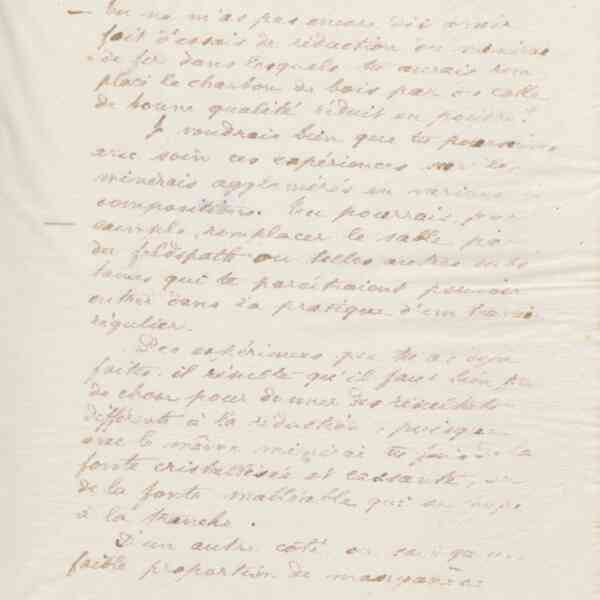 Tu ne m'as pas encore dit avoir
fait d'essais de réduction de minérai
de fer dans lesquels tu aurais rem
placé le charbon de bois par du coke
de bonne qualité réduit en poudre
Je voudrais bien que tu poursuives
avec soin ces expériences sur les
minerais agglomérés en variant
compositions. Tu pourrais, par
exemple, remplacer le sable par
du feldspath ou telles autres subs
tances qui te paraîtraient pouvoir
entrer dans la pratique d'un travail
régulier.
Des expériences que tu as déjà
faites, il résulte qu'il faut bien peu
de chose pour donner des résultats
différents à la réduction, puisque
avec le même minérai tu
fonte cristallisée et cassante,
de la fonte malléable qui se coupe
à la tranche.
D'un autre côté, on sait qu'une
faible proportion de manganèse